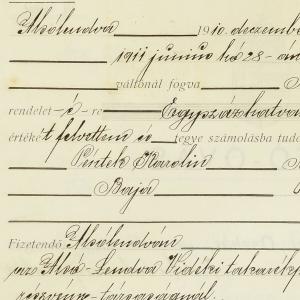 Alsólendva 1910. deczembe
1911 junius hó 28-án
váltónál fogva
rendelet-é-re Egyszázhatvan
értéket felvettem és tegye számolásba tudó
Péntek Karolin
Baja
Fizetendő Alsólendván
Alsó-Lendva Vidéki takarékp
részvény-társaságnál.